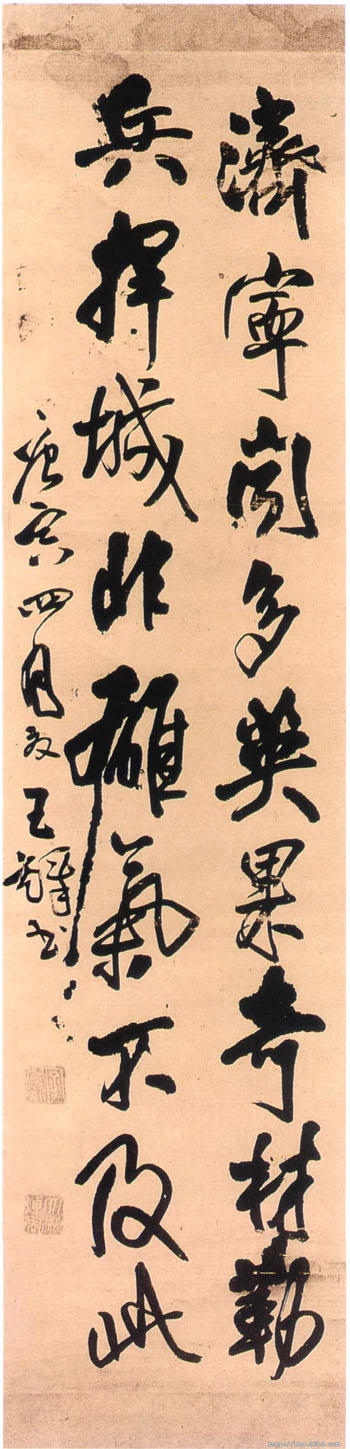 濟寧多英果奇材勒
兵捍城非雄氣不及此
庚寅四月王鐸書